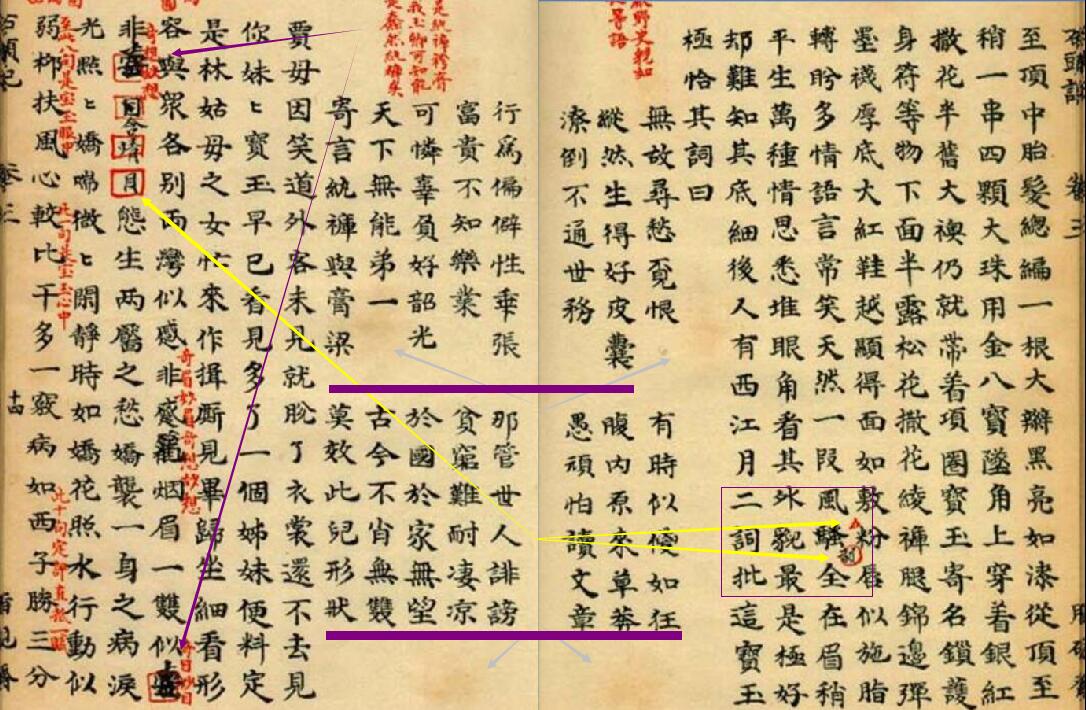 至頂中胎髮總編一根大辮黑亮如漆從頂至
稍一串四顆大珠用金八寶墜角上穿着銀紅
撒花半舊大襖仍就帶着項圈寶玉寄名鎖護
身符等物下面半露松花撒花綾褲腿錦邊彈
墨襪厚底大紅鞋越顯得面如敷粉唇似施脂
轉盼多情語言常笑天然一段風騷全在眉稍
平生萬種情思悉堆眼角看其外貌最是極好
却難知其底細後人有西江月二詞批這寶玉
極恰其詞曰
無故尋愁覓恨 有時似傻如狂
縱然生得好皮囊 腹內原來草莽
潦倒不通世務 愚頑怕讀文章
行為偏僻性乖張 那管世人誹謗
富貴不知樂業 貧窮難耐凄凉
可憐辜負好韶光 於國於家無望
天下無能第一 古今不肖無雙
寄言紈褲與膏粱 莫效此兒形狀
賈母因笑道外客未見就脫了衣裳還不去見
你妹ヒ寶玉早已看見多了一個姊妹便料定
是林姑母之女忙來作揖厮見畢歸坐細看形
容與衆各別两灣似感非蹙籠烟眉一雙似
奇眉妙眉奇想妙想
奇目妙目
奇想妙想
非 態生两靨之愁嬌襲一身之病淚
光點ヒ嬌喘微ヒ閑靜時如嬌花照水行動似
至此八句是宝玉眼中
此一句是宝玉心中
此十句定評直抵一賦
弱柳扶風心較比干多一竅病如西子勝三分